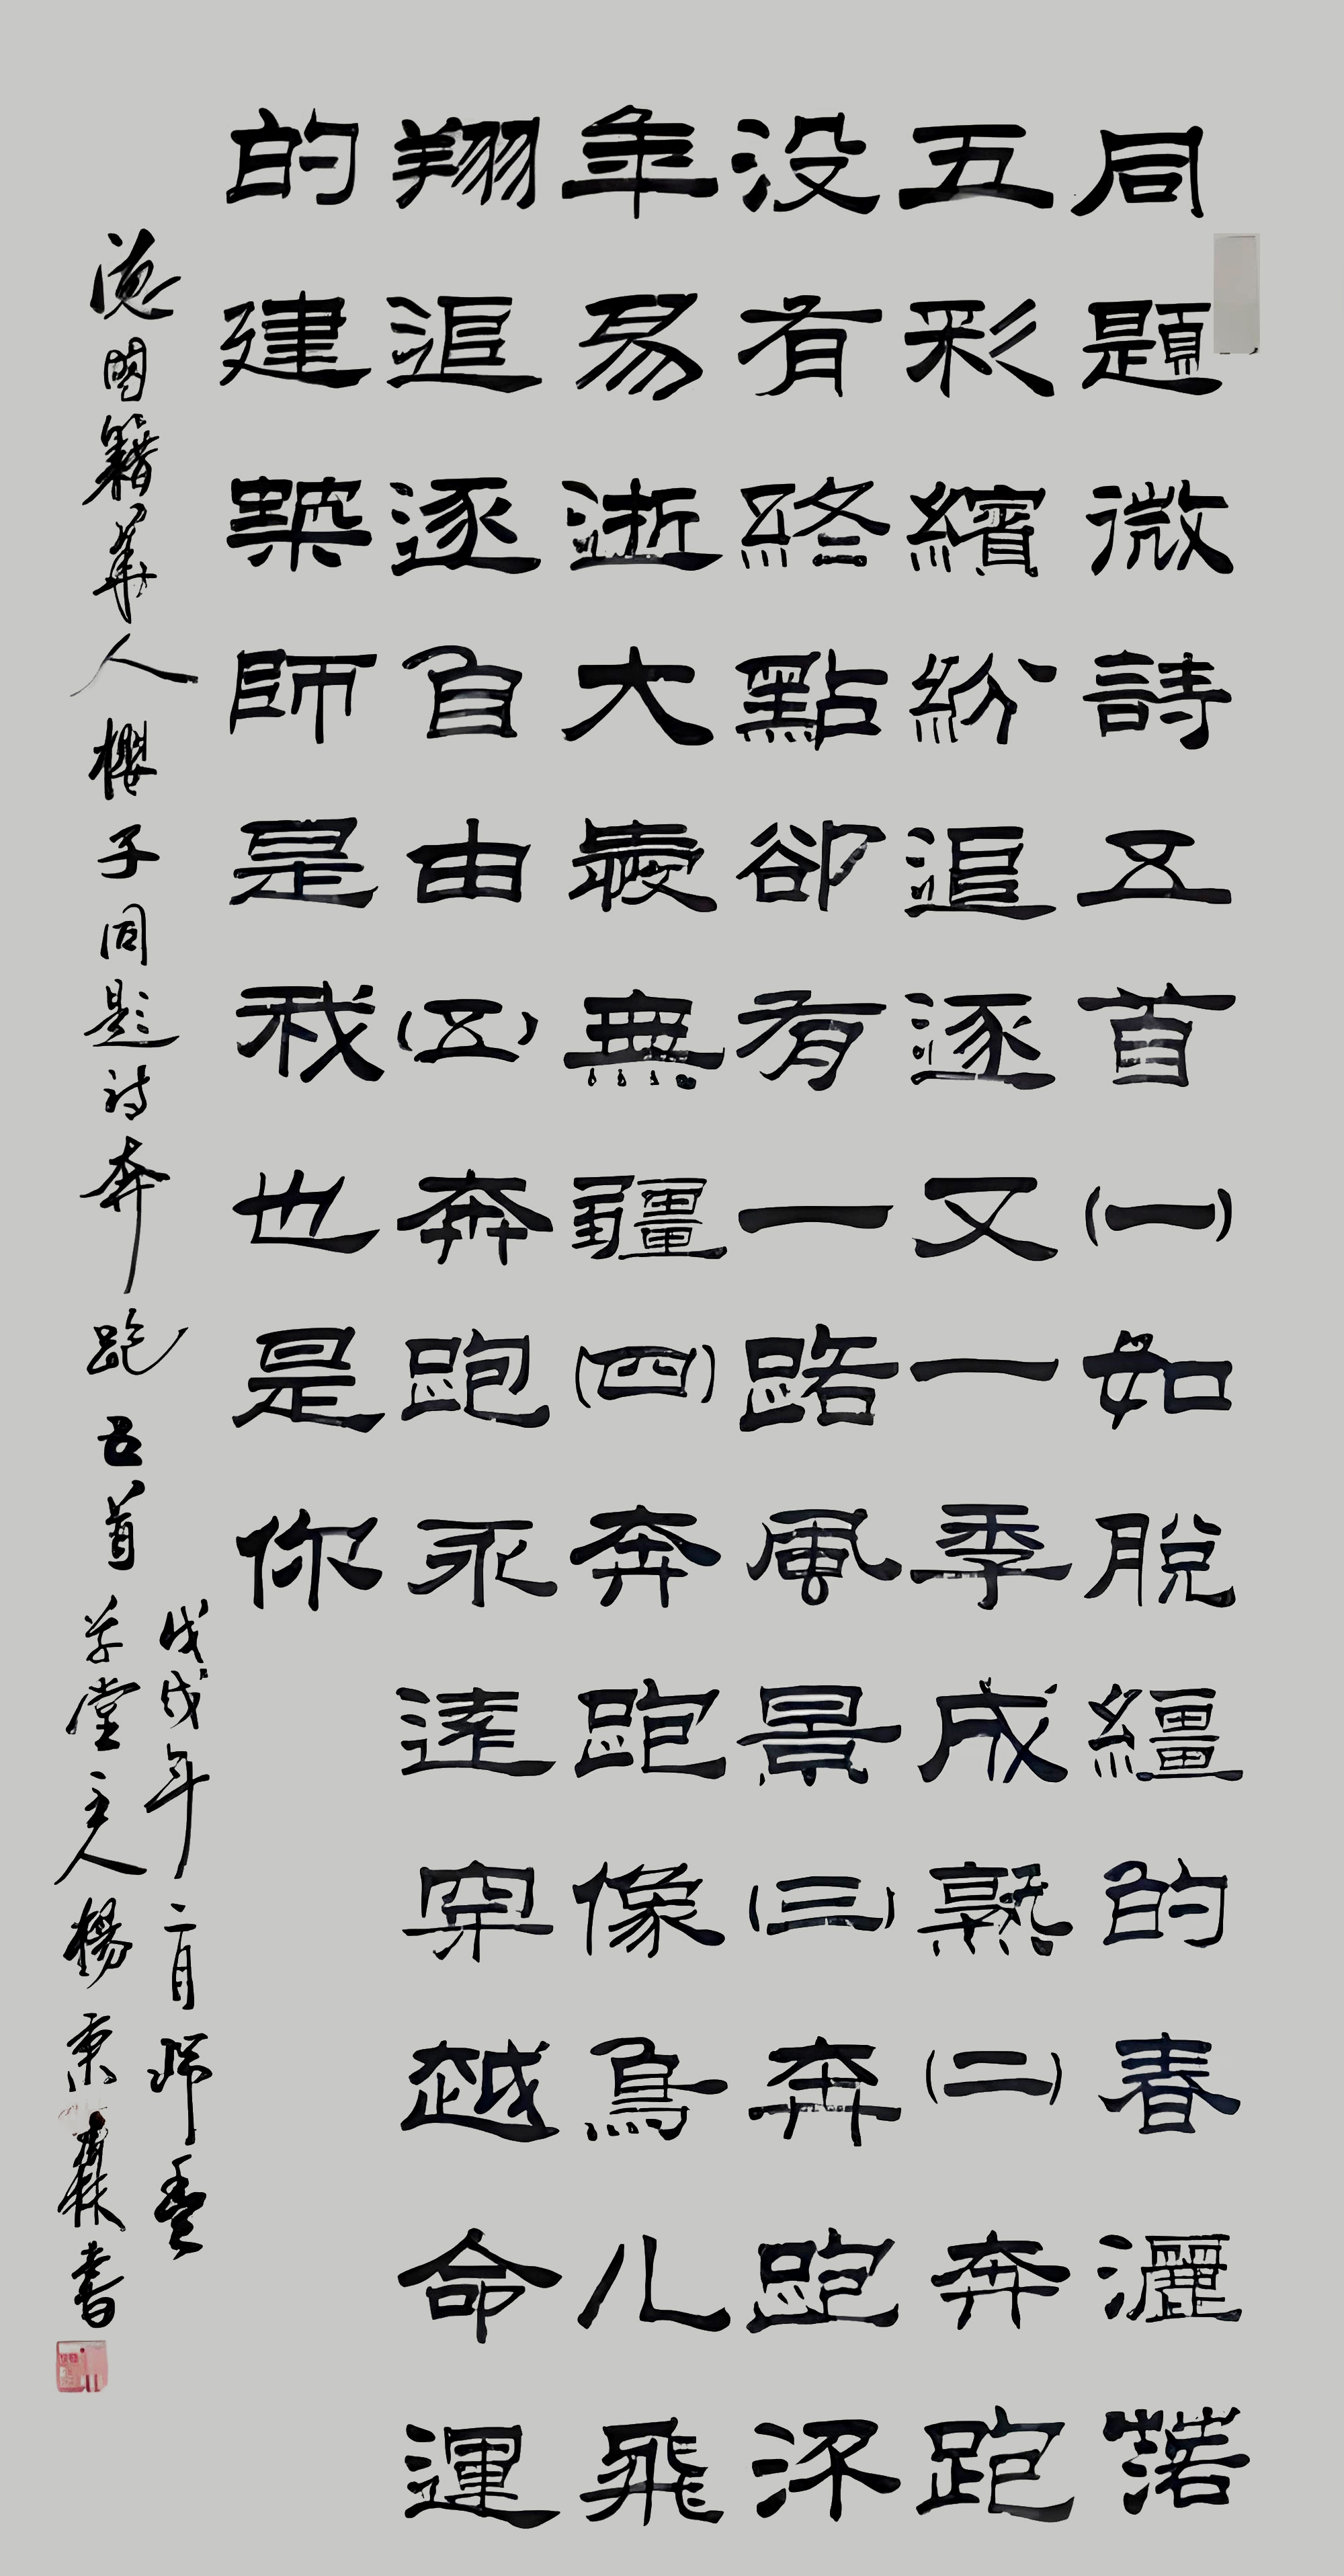 同題微詩五首(一)如脫繮的春灑落
五彩繽紛追逐又一季成熟(二)奔跑
没有終點卻有一路風景(三)奔跑流
年易逝大愛無疆(四)奔跑像鳥儿飛
翔追逐自由(五)奔跑永遠穿越命運
的建築師是我也是你
德國籍華人櫻子同題诗奔跑五首
戊戌年二月
草堂主人楊書